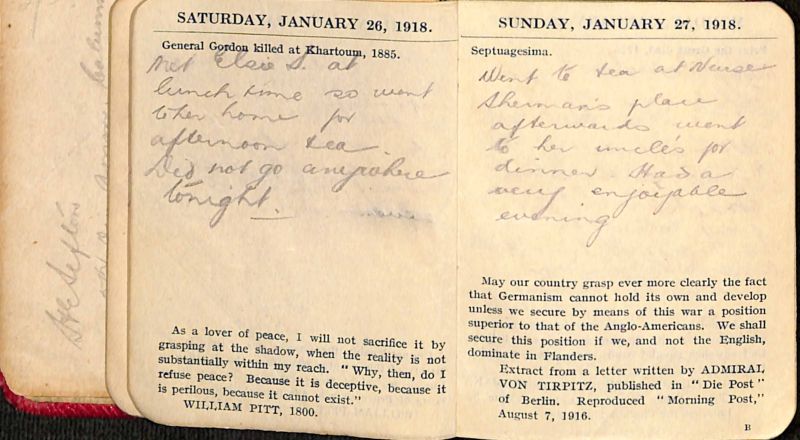 SATURDAY, JANUARY 26, 1918.
General Gordon killed at Khartoum, 1885.
Met Elsie S. at
lunch time so went
to her home for
afternoon tea.
Did not go anywhere
tonight.
As a lover of peace, I will not sacrifice it by
grasping at the shadow, when the reality is not
substantially within my reach. "Why, then, do I
refuse peace? Because it is deceptive, because it
is perilous, because it cannot exist."
WILLIAM PITT, 1800.
SUNDAY, JANUARY 27, 1918.
Septuagesima.
Went to tea at Nurse
Sherman's place
afterwards went
to her uncle's for
dinner. Had a
very enjoyable
evening
May our country grasp ever more clearly the fact
that Germanism cannot hold its own and develop
unless we secure by means of this war a position
superior to that of the Anglo-Americans. We shall
secure this position if we, and not the English,
dominate in Flanders.
Extract from a letter written by ADMIRAL
VON TIRPITZ, published in "Die Post"
of Berlin. Reproduced "Morning Post,"
August 7, 1916.
B